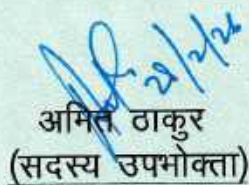 28/2/26
अमित ठाकुर
(सदस्य उपभोक्ता)